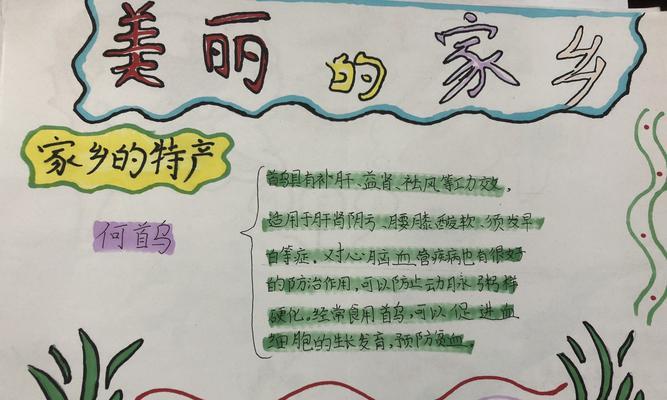 美丽的家乡
家乡的特产
何首乌
首乌具有补肝、益肾、祛风等功效。
适用于肝肾阴亏、腰膝酸软、须发早
白等症，对心脑血管疾病也有很好
的防治作用，可以防止动脉粥样
硬化。经常食用首乌，可以促进血
细胞的生长发育，预防贫血。